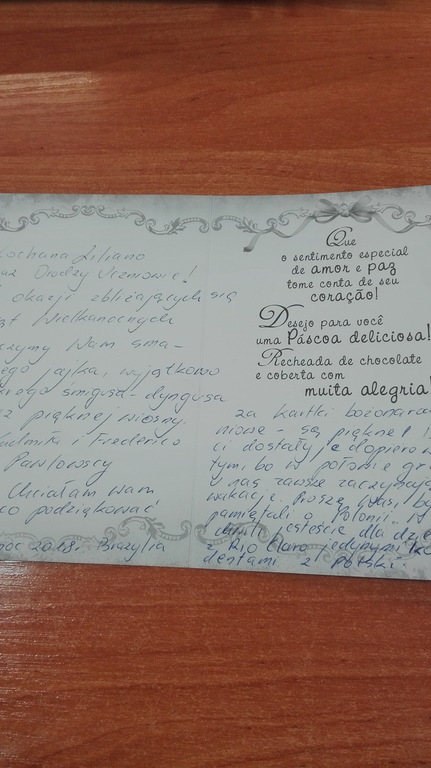 ochana Liliano
az Drodzy Uczniowie!
okazji zbliżających się
ąt Wielkanocnych
czymy Wam sma-
ego jajka, wyjątkowo
krego śmigusa-dyngusa
z pięknej wiosny.
udmiła i Frederico
Pawlowscy
Chciałam Wam
co podziękować
noc 2018r. Brazylia
Que
o sentimento especial
de amor e paz
tome conta de seu
coração!
Desejo para você
uma Páscoa deliciosa!
Recheada de chocolate
e coberta com
muita alegria!
za kartki bożonaro
niowe - są piękne!
ci dostały je dopiero w
tym, bo w połowie gr
u nas zawsze zaczynają
wakacje. Proszę Was, by
pamiętali o Polonii.
jesteście dla dzie
z Rio Claro jedynymi ko
dentami z Polski.